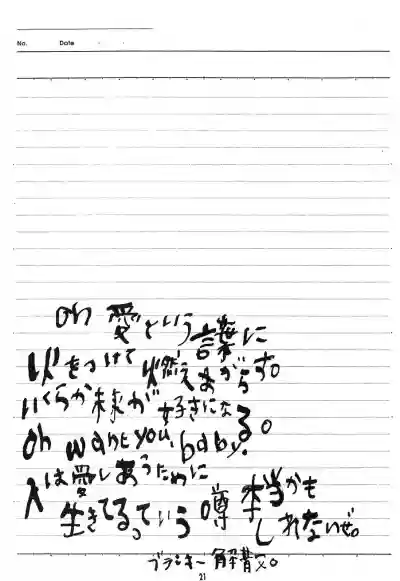 No. Date
oh 愛という言葉に
火をつけて燃えあがらす。
いくらか未来が好きになる。
oh want you, baby.
人は愛しあうために
生きてるっていう噂 本当かも
しれないぜ。
ブランキー解散。
21